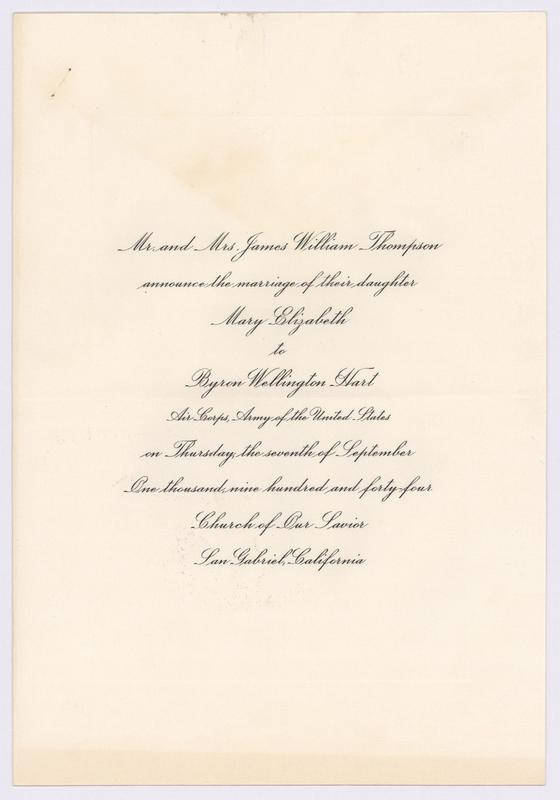 Mr. and Mrs. James William Thompson
announce the marriage of their daughter
Mary Elizabeth
to
Byron Wellington Hart
Air Corps, Army of the United States
on Thursday, the seventh of September
One thousand, nine hundred and forty-four
Church of Our Savior
San Gabriel, California